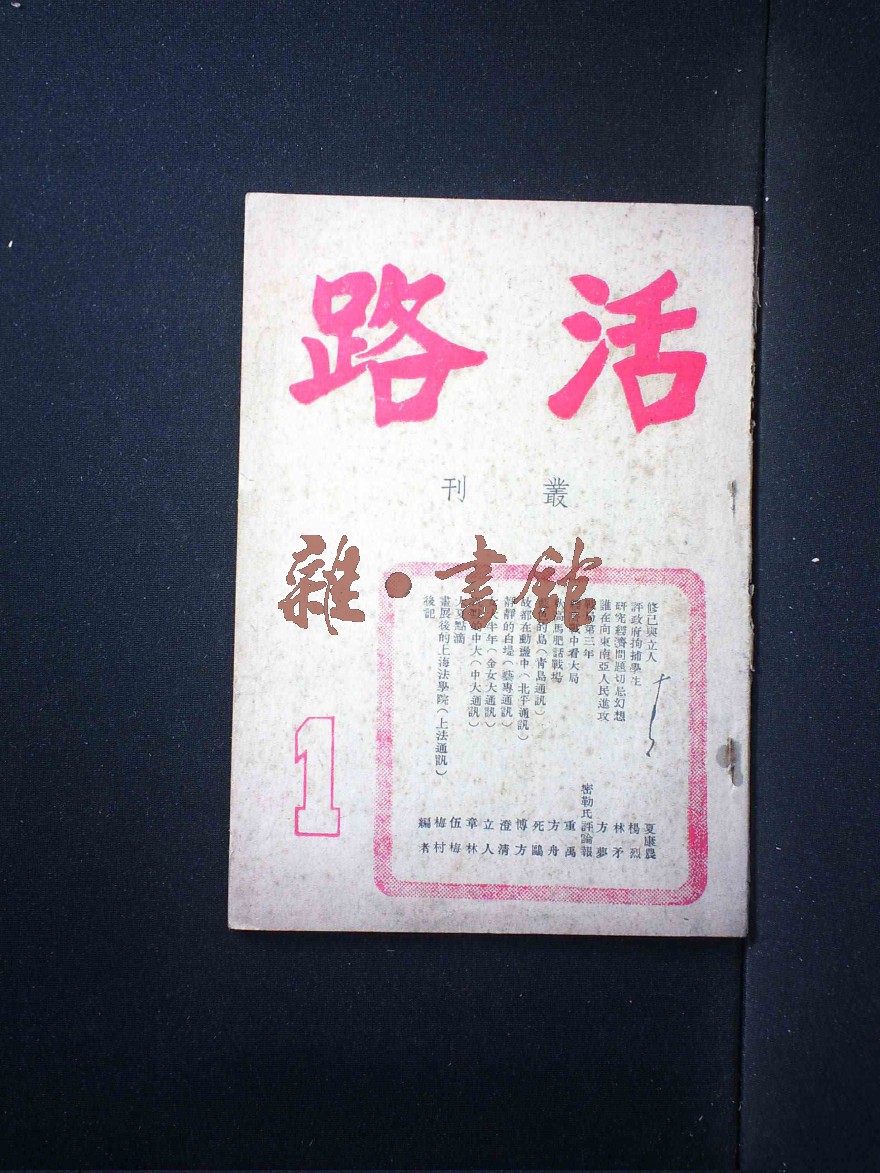 活路
叢刊
雜·書館
修己與立人
夏康農
評政府拘捕學生
楊烈
研究經濟問題切忌幻想
林矛
誰在向東南亞人民進攻
方夢
第三年
密勒氏評論報
中看大局
重禹
馬肥話戰場
方舟
的島(青島通訊)
死鷗
故都在動盪中(北平通訊)
博方
靜靜的白堤(藝專通訊)
澄清
年(金女大通訊)
立人
中大(中大通訊)
章林
點滴
伍梅
畫展後的上海法學院(上法通訊)
梅村
後記
編者
1